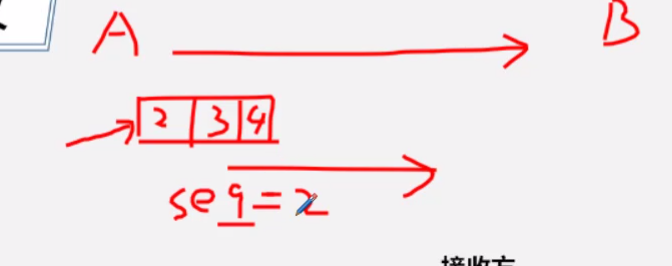 A B
2 3 4
seq=2
接收方